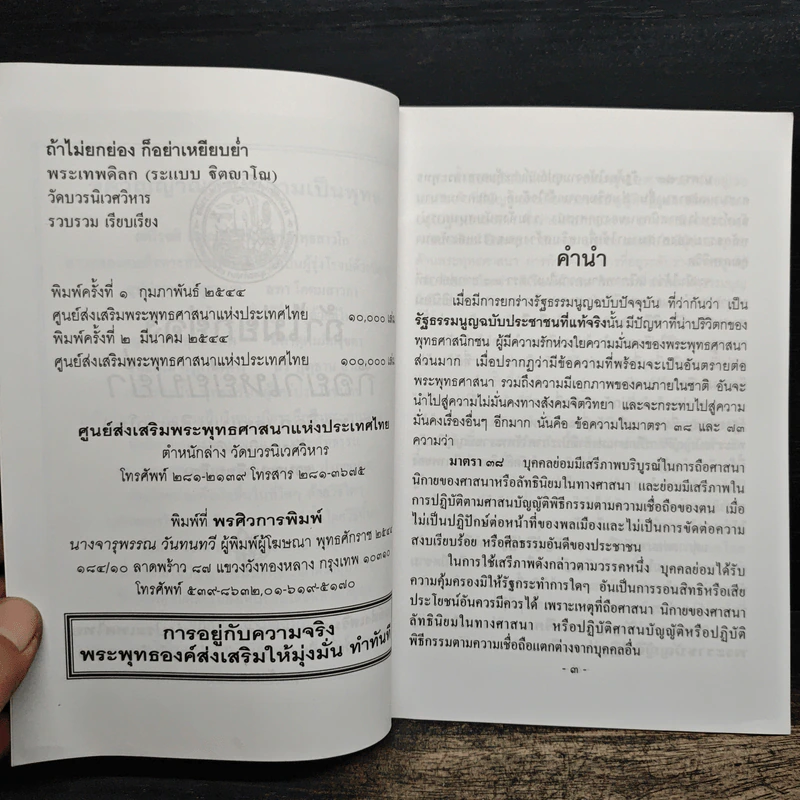 ถ้าไม่ยกย่อง ก็อย่าเหยียบย่ำ
พระเทพดิลก (ระแบบ ฐิตญาโณ)
วัดบวรนิเวศวิหาร
รวบรวม เรียบเรียง
พิมพ์ครั้งที่ ๑ กุมภาพันธ์ ๒๕๔๔
ศูนย์ส่งเสริมพระพุทธศาสนาแห่งประเทศไทย ๑๐,๐๐๐
พิมพ์ครั้งที่ ๒ มีนาคม ๒๕๔๔
ศูนย์ส่งเสริมพระพุทธศาสนาแห่งประเทศไทย ๑๐๐,๐๐๐
ศูนย์ส่งเสริมพระพุทธศาสนาแห่งประเทศไทย
ตำหนักล่าง วัดบวรนิเวศวิหาร
โทรศัพท์ ๒๘๑-๒๑๓๙ โทรสาร ๒๘๑-๓๖๗๕
พิมพ์ที่ พรศิวการพิมพ์
นางจารุพรรณ วันทนทวี ผู้พิมพ์ผู้โฆษณา พุทธศักราช ๒๕๔๔
๑๘๔/๑๐ ลาดพร้าว ๘๗ แขวงวังทองหลาง กรุงเทพ ๑๐๓๑๐
โทรศัพท์ ๕๓๙-๘๖๓๒,๐๑-๖๑๙-๕๑๗๐
การอยู่กับความจริง
พระพุทธองค์ส่งเสริมให้มุ่งมั่น ทำทันที
คำนำ
เมื่อมีการยกร่างรัฐธรรมนูญฉบับปัจจุบัน ที่ว่ากันว่า เป็น
รัฐธรรมนูญฉบับประชาชนที่แท้จริงนั้น มีปัญหาที่น่าปริวิตกของ
พุทธศาสนิกชน ผู้มีความรักห่วงใยความมั่นคงของพระพุทธศาสนา
ส่วนมาก เมื่อปรากฏว่ามีข้อความที่พร้อมจะเป็นอันตรายต่อ
พระพุทธศาสนา รวมถึงความมีเอกภาพของคนภายในชาติ อันจะ
นำไปสู่ความไม่มั่นคงทางสังคมจิตวิทยา และจะกระทบไปสู่ความ
มั่นคงเรื่องอื่นๆ อีกมาก นั่นคือ ข้อความในมาตรา ๓๘ และ ๗๓
ความว่า
มาตรา ๓๘ บุคคลย่อมมีเสรีภาพบริบูรณ์ในการถือศาสนา
นิกายของศาสนาหรือลัทธินิยมในทางศาสนา และย่อมมีเสรีภาพใน
การปฏิบัติตามศาสนบัญญัติพิธีกรรมตามความเชื่อถือของตน เมื่อ
ไม่เป็นปฏิปักษ์ต่อหน้าที่ของพลเมืองและไม่เป็นการขัดต่อความ
สงบเรียบร้อย หรือศีลธรรมอันดีของประชาชน
ในการใช้เสรีภาพดังกล่าวตามวรรคหนึ่ง บุคคลย่อมได้รับ
ความคุ้มครองมิให้รัฐกระทำการใดๆ อันเป็นการรอนสิทธิหรือเสีย
ประโยชน์อันควรมีควรได้ เพราะเหตุที่ถือศาสนา นิกายของศาสนา
ลัทธินิยมในทางศาสนา หรือปฏิบัติศาสนบัญญัติหรือปฏิบัติ
พิธีกรรมตามความเชื่อถือแตกต่างจากบุคคลอื่น
- ๓ -